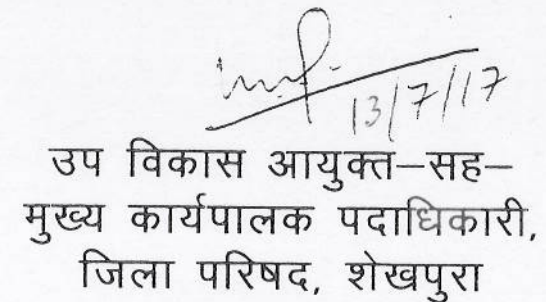 13/7/17
उप विकास आयुक्त–सह–
मुख्य कार्यपालक पदाधिकारी,
जिला परिषद, शेखपुरा